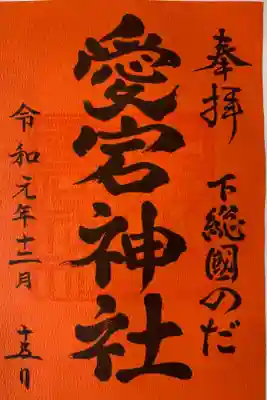 奉拝
下総國のだ
愛宕神社
令和元年十二月
十五日